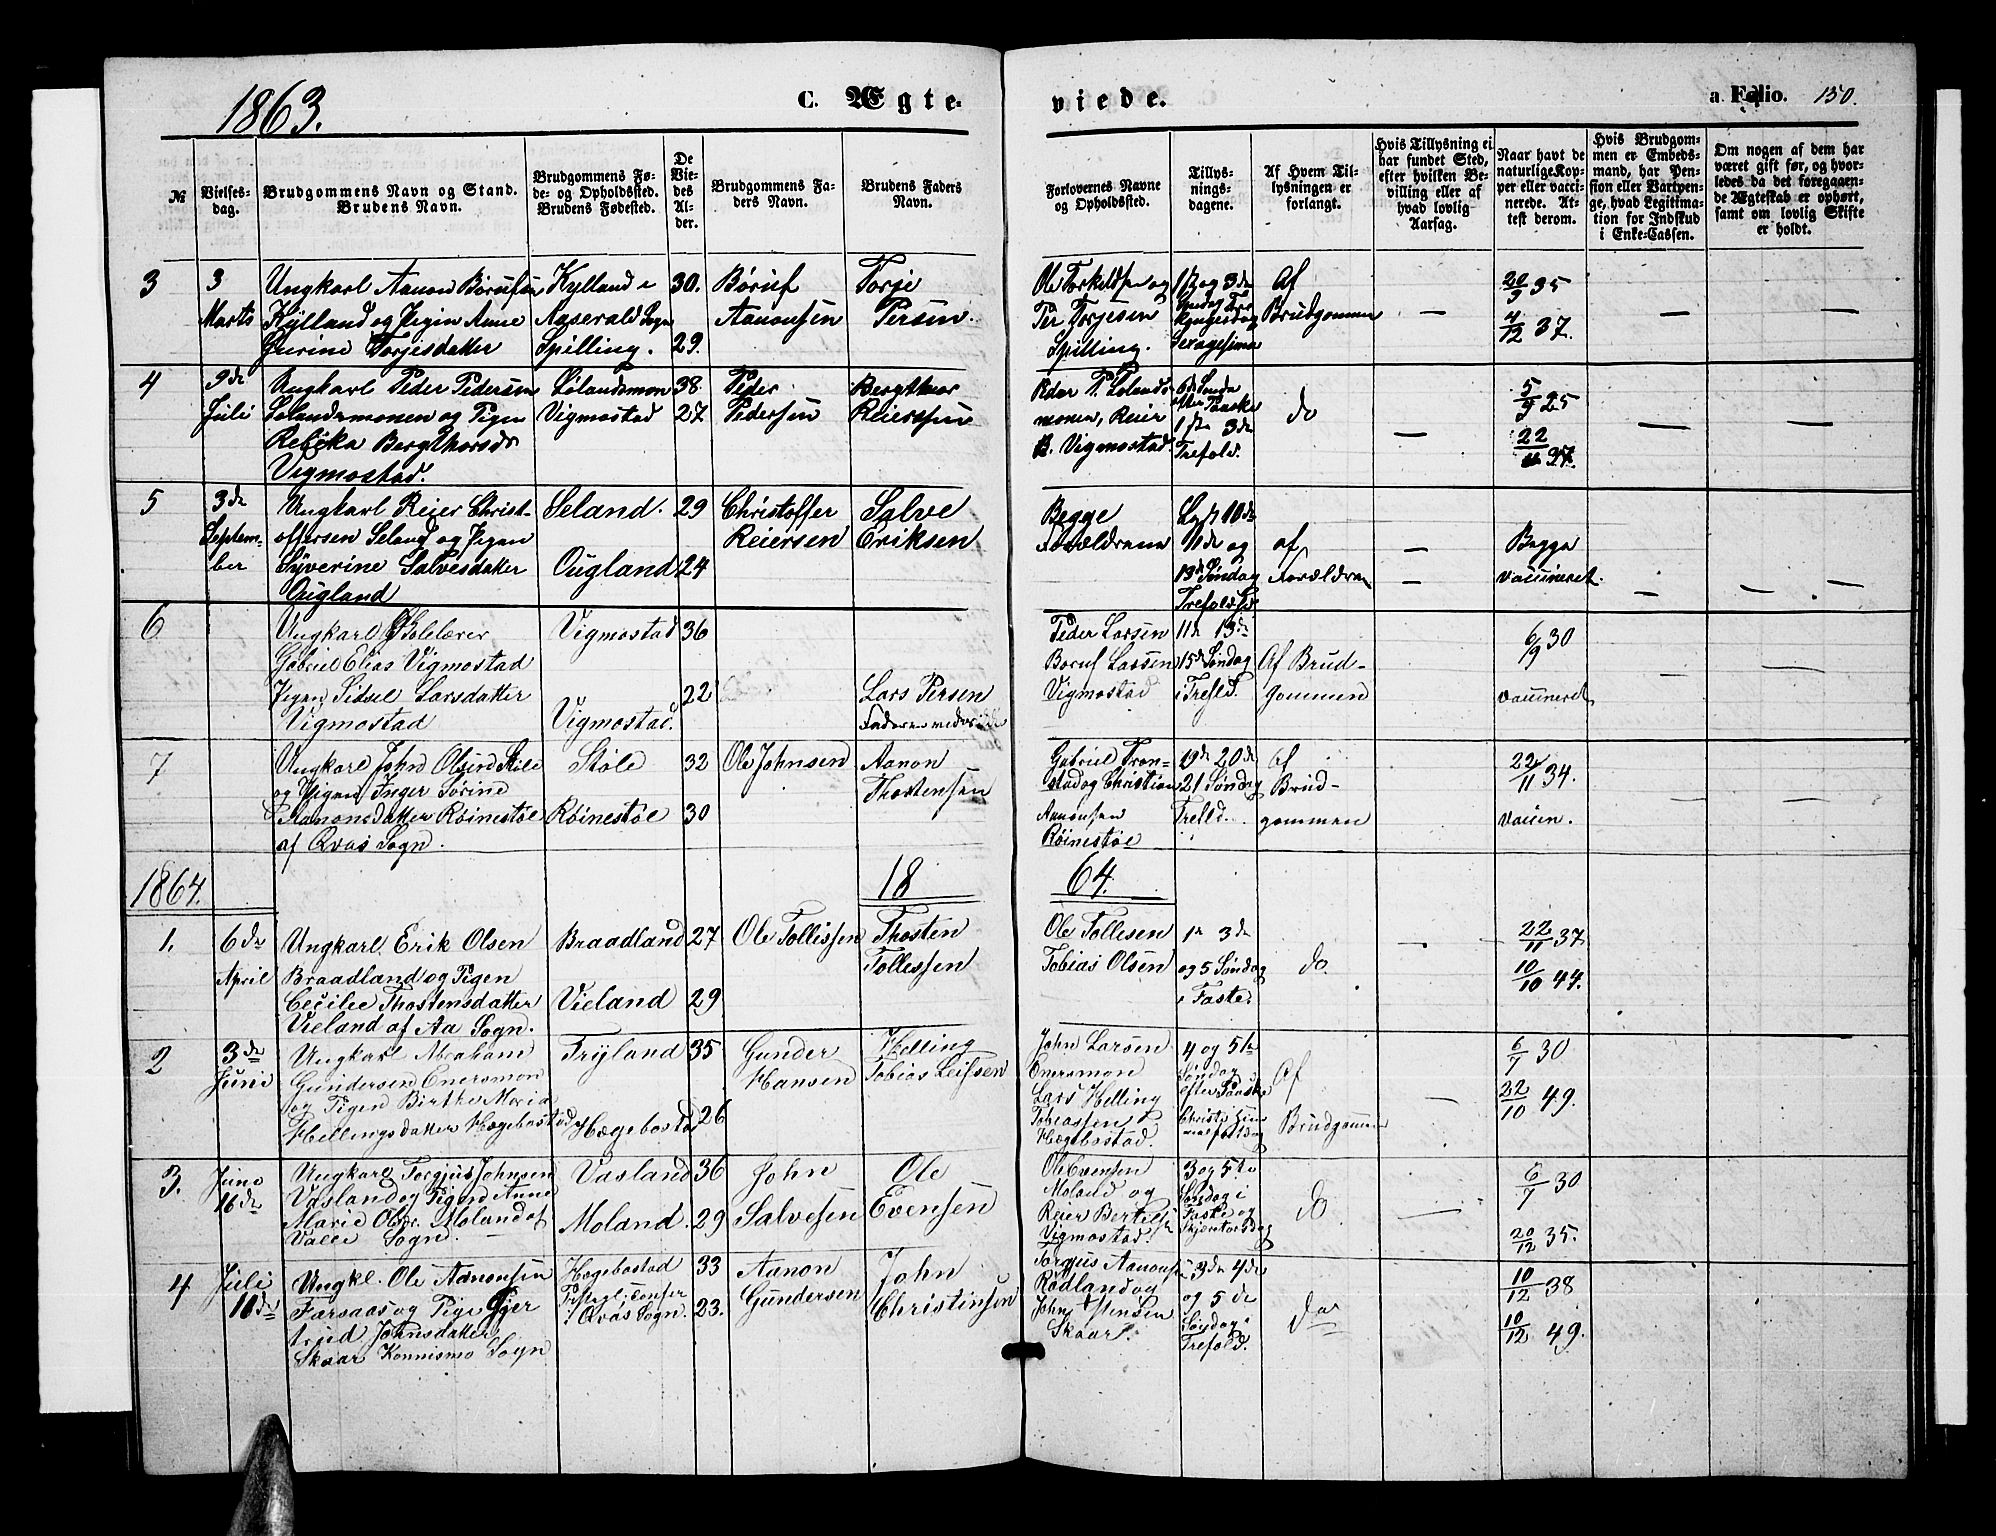 1863.
C. Ægte-
viede.
a. Folio. 150.
№
Vielses-
dag.
Brudgommens Navn og Stand.
Brudens Navn.
Brudgommens Fø-
de- og Opholdssted.
Brudens Fødested.
De
Vie-
des
Al-
der.
Brudgommens Fa-
ders Navn.
Brudens Faders
Navn.
Forlovernes Navne
og Opholdssted.
Tillys-
nings-
dagene.
Af Hvem Til-
lysningen er
forlangt.
Hvis Tillysning ei
har fundet Sted,
efter hvilken Be-
villing eller af
hvad lovlig
Aarsag.
Naar havt de
naturlige Kop-
per eller vacci-
nerede. At-
test derom.
Hvis Brudgom-
men er Embeds-
mand, har Pen-
sion eller Vartpen-
ge, hvad Legitima-
tion for Indskud
i Enke-Cassen.
Om nogen af dem har
været gift før, og hvor-
ledes da det foregaaen-
de Ægteskab er ophørt,
samt om lovlig Skifte
er holdt.
3
3
Marts
Ungkarl Aanon Børufsen
Kylland og Pigin Anne
Gurine Torjesdatter
Kylland i
Aaserald Sogn
Spilling.
30.
29.
Børuf
Aanonsen
Torje
Persen.
Ole Torkeldsen og
Per Torjesen
Spilling.
Sexagesima
Af
Brudgommen
—
20/9 35
4/12 37.
—
—
4
9de
Juli
Ungkarl Peder Pedersen
Lølandsmonen og Pigen
Rebeka Bergthorsdr
Vigmostad.
Lølandsmon
Vigmostad
38
27
Peder
Pedersen
Bergthor
Reiersen
Peder P. Lølands-
monen, Reier
B. Vigmostad.
6de Sønda
efter Paaske
1ste 3de
Trefold.
do
—
5/9 25
22/11 37.
—
—
5
3de
Septem-
ber
Ungkarl Reier Christ-
offersen Seland og Pigen
Syverine Salvesdatter
Ougland
Seland.
Ougland
29
24
Christoffer
Reiersen
Salve
Eriksen
Begge
Forældrene
10de
11de og
13de Søndag
Trefold.
af
Forældrene
—
—
Begge
vaccineret.
—
—
—
6
Ungkarl Skolelærer
Gabriel Elias Vigmostad
Pigen Sidsel Larsdatter
Vigmostad
Vigmostad
Vigmostad.
36
22
Lars Persen
Faderen
Peder Larsen
Boruf Lassen
Vigmostad
11de 13de
15de Søndag
i Trefld.
Af Brud-
gommen
6/9 30
vaccineret
—
—
7
Ungkarl John Olsen Støle
og Pigen Inger Sørine
Aanonsdatter Røinestøe
af Qvås Sogn.
Støle
Røinestøe
32
30
Ole Johnsen
Aanon
Thostensen
Gabriel Tron-
stad og Christian
Aanonsen
Røinestøe
19de 20de
21 Søndag
Trefld.
Af
Brud-
gommen
22/11 34.
vaccin.
—
—
1864.
18
64.
1.
6de
April
Ungkarl Erik Olsen
Braadland og Pigen
Cecilie Thostensdatter
Vieland af Aa Sogn.
Braadland
Vieland
27
29
Ole Tollissen
Thosten
Tollessen
Ole Tollesen
Tobias Olsen
1te 3de
og 5 Søndag
i Faste.
do
—
—
22/11 37
10/10 44.
2
3de
Juni
Ungkarl Abraham
Gundersen Enersmon
og Pigen Birthe Maria
Hellingsdatter Hægebostad
Tryland
Hægebostad
35
26
Gunder
Hansen
Helling
Tobias Leifsen
John Larsen
Enersmon
Lars Helling
Tobiassen
Hægebostad.
4 og 5te
Søndag
efter Paaske
Christi Him-
melfartsdag
Af
Brudgommen
—
6/7 30
22/10 49.
—
3.
Juni
16de
Ungkarl Torgjus Johnsen
Vasland og Pigen Anne
Marie Olsdr. Moland af
Valle Sogn.
Vasland
Moland.
36
29
John
Salvesen
Ole
Evensen
Ole Evensen
Moland og
Reier Bertels
Vigmostad.
3 og 5te
Søndag i
Faste og
Skjærtorsdag
do
—
6/7 30
20/12 35.
4
Juli
10de
Ungkl. Ole Aanonsen
Farsaas og Pige Gjer
trud Johnsdatter
Skaar Konnismo Sogn
Hægebostad
i Qvås Sogn.
33
23.
Aanon
Gundersen
John
Christinsen
Torgjus Aanonsen
Rødland og
John Stensen
Skaar.
3de 4de
og 5 de
Søndag i
Trefold.
do
10/12 38
10/12 49.